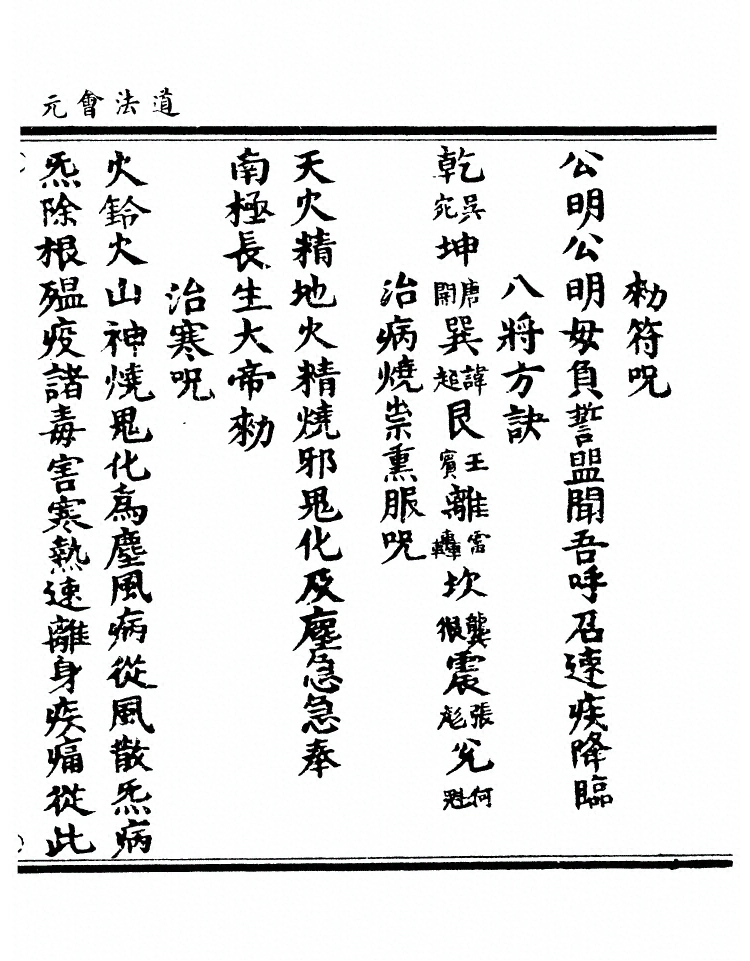 道法會元
勅符呪
公明公明毋負誓盟聞吾呼召速疾降臨
八將方訣
乾吳宛坤唐開巽諱起艮王賓離雷轟坎龔狠震張彪兌何魁
治病燒祟熏服呪
天火精地火精燒邪鬼化及塵急急奉
南極長生大帝勅
治寒呪
火鈴火山神燒鬼化為塵風病從風散炁病
炁除根殟疫諸毒害寒熱速離身疾痛從此